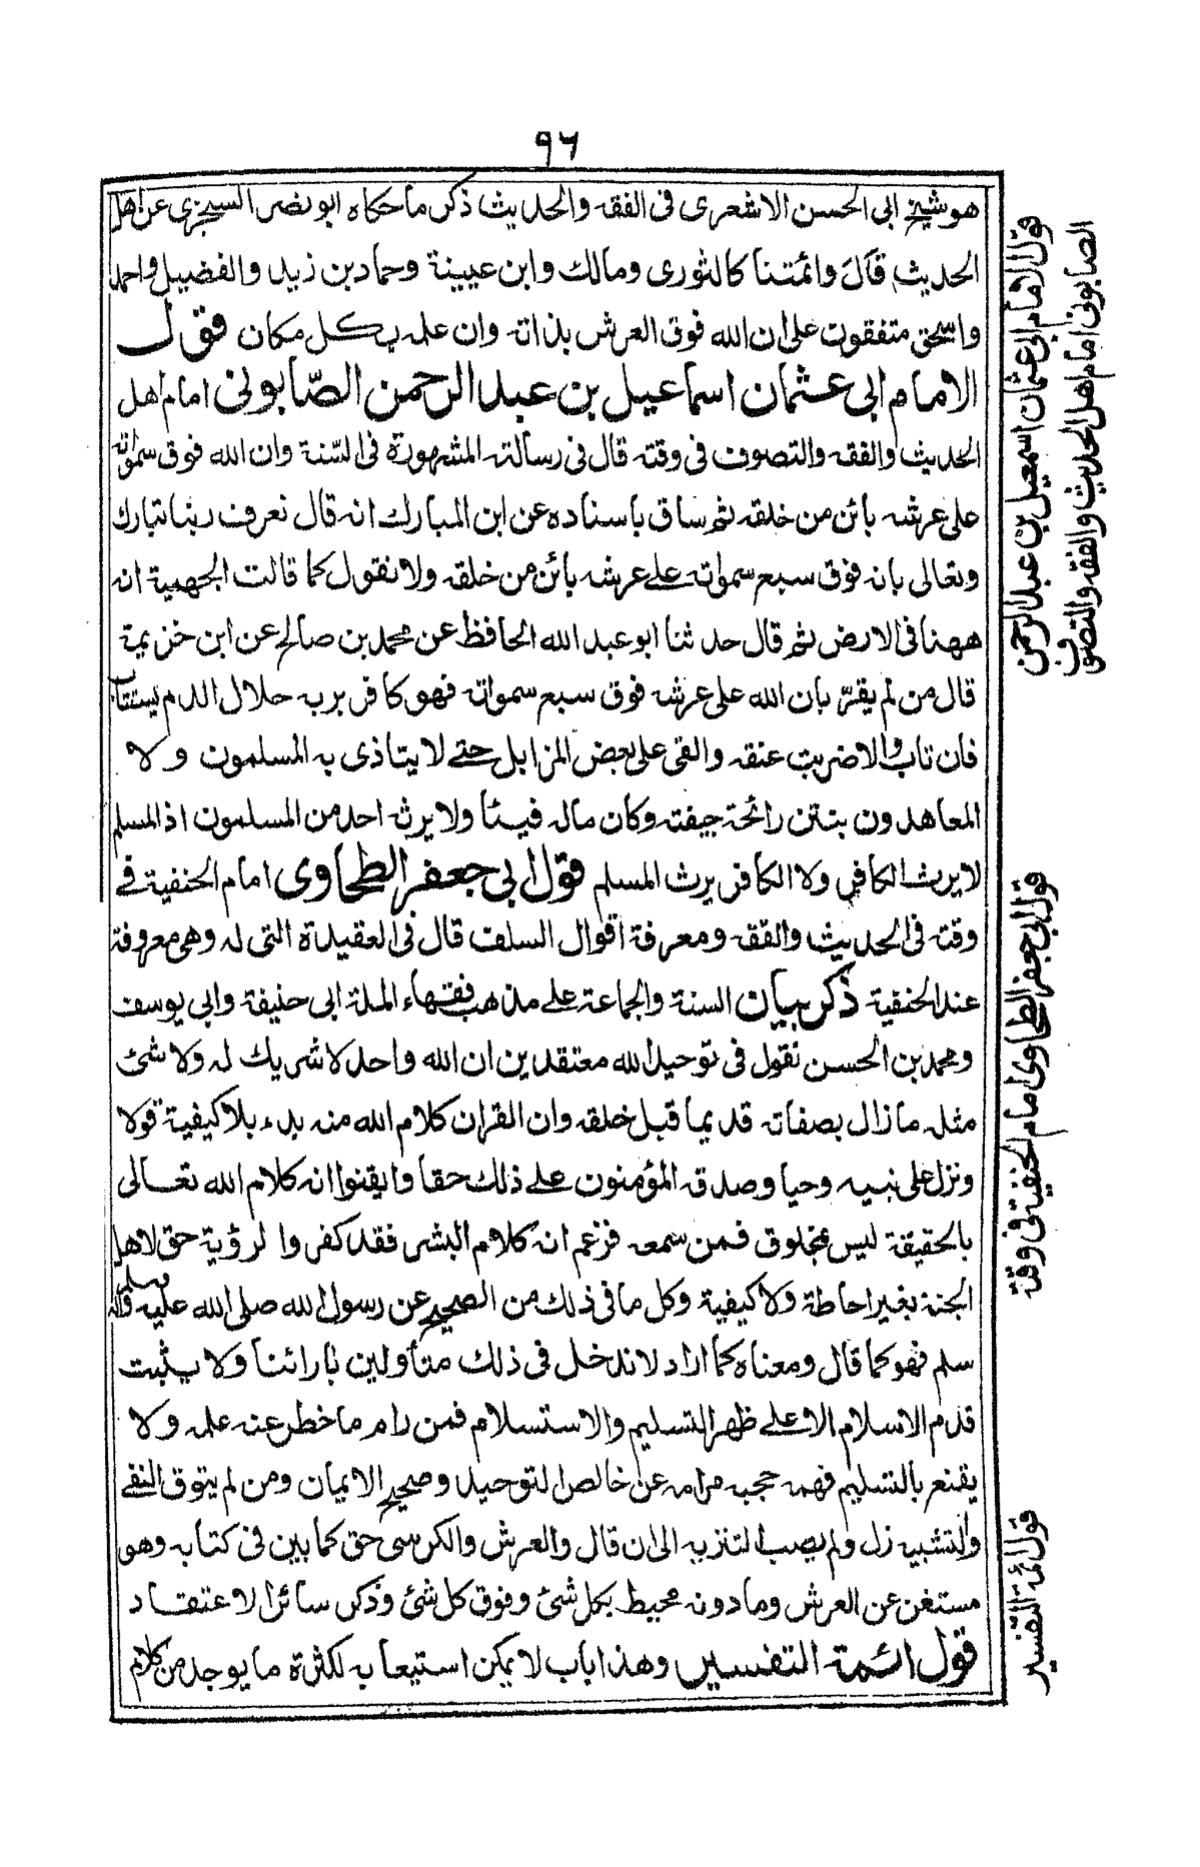 ٩٦
هو شيخ ابى الحسن الاشعرى فى الفقه والحديث ذكر ما حكاه ابو نصر السجزى عن اهل
الحديث قال وائمتنا كالثورى ومالك وابن عيينة وحماد بن زيد والفضيل واحمد
واسحق متفقون على ان الله فوق العرش بذاته وان علمه بكل مكان قول
الامام ابى عثمان اسماعيل بن عبد الرحمن الصّابونى امام اهل
الحديث والفقه والتصوف فى وقته قال فى رسالته المشهورة فى السّنة وان الله فوق سمواته
على عرشه بائن من خلقه ثم ساق باسناده عن ابن المبارك انه قال نعرف ربنا تبارك
وتعالى بانه فوق سبع سمواته على عرشه بائن من خلقه ولا نقول كما قالت الجهمية انه
ههنا فى الارض ثم قال حدثنا ابو عبد الله الحافظ عن محمد بن صالح عن ابن خزيمة
قال من لم يقرّ بان الله على عرشه فوق سبع سمواته فهو كافر بربه حلال الدم يستتاب
فان تاب والا ضربت عنقه والقى على بعض المزابل حتے لا يتاذى به المسلمون ولا
المعاهدون بنتن رائحة جيفته وكان ماله فيئا ولا يرث احد من المسلمون اذ المسلم
لا يرث الكافر ولا الكافر يرث المسلم قول ابى جعفر الطحاوى امام الحنفية فے
وقته فى الحديث والفقه ومعرفة اقوال السلف قال فى العقيدة التى له وهى معروفة
عند الحنفية ذكر بيان السنة والجماعة علے مذهب فقهاء الملة ابى حنيفة وابي يوسف
ومحمد بن الحسن نقول فى توحيد الله معتقدين ان الله واحد لا شريك له ولا شئ
مثله ما زال بصفاته قديما قبل خلقه وان القران كلام الله منه بدء بلا كيفية قولا
ونزل على نبيه وحيا وصدقه المؤمنون علے ذلك حقا وايقنوا انه كلام الله تعالى
بالحقيقة ليس بمخلوق فمن سمعه فزعم انه كلام البشر فقد كفر والرؤية حق لاهل
الجنة بغير احاطة ولا كيفية وكل ما فى ذلك من الصحيح عن رسول الله صلى الله عليه وآله و
سلم فهو كما قال ومعناه كما اراد لا ندخل فى ذلك متأولين بارائنا ولا يثبت
قدم الاسلام الا علے ظهر التسليم والاستسلام فمن رام ما خطر عنه علمه ولا
يقنع بالتسليم فهمه حجبه مرامه عن خالص التوحيد وصحيح الايمان ومن لم يتوق النفے
والتشبيه زل ولم يصب التنزيه الى ان قال والعرش والكرسى حق كما بين فى كتابه وهو
مستغن عن العرش وما دونه محيط بكل شئ وفوق كل شئ وذكر سائر الاعتقاد
قول ائمة التفسير وهذا باب لا يمكن استيعابه لكثرة ما يوجد من كلام
قول الامام ابى عثمان اسمعيل بن عبد الرحمن
الصابونى امام اهل الحديث والفقه والتصوف
قول ابى جعفر الطحاوى امام الحنفية فى وقته
قول ائمة التفسير